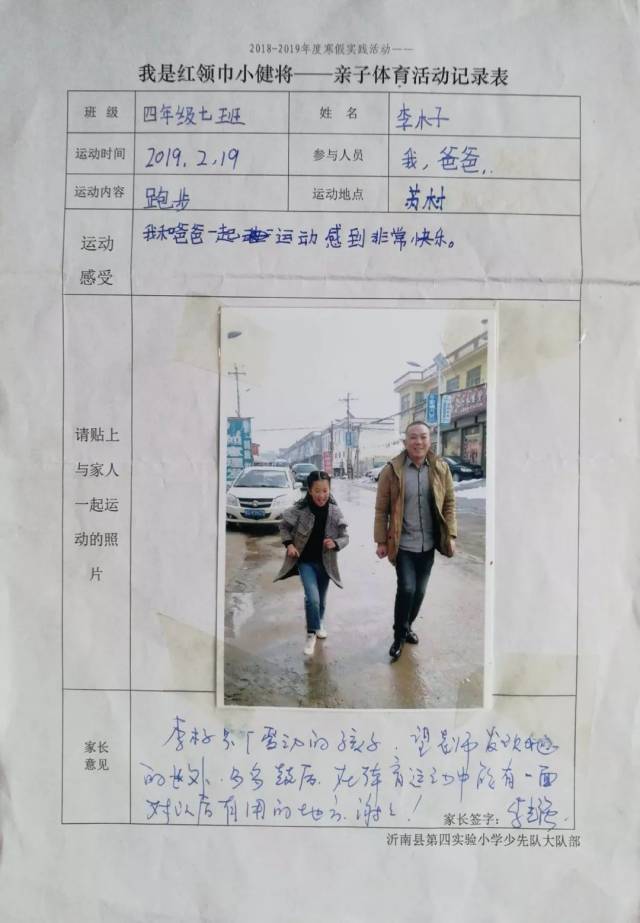 2018-2019年度寒假实践活动——
我是红领巾小健将——亲子体育活动记录表
班 级 四年级七班 姓 名 李木子
运动时间 2019.2.19 参与人员 我,爸爸..
运动内容 跑步 运动地点 苏村
运动
感受
我和爸爸一起 运动感到非常快乐。
请贴上
与家人
一起运
动的照
片
家长
意见
李 子是个 动的孩子,望老师发现她
的长处,多多鼓励,在体育运动中能有一面
对以后有用的地方,谢谢!
家长签字:
沂南县第四实验小学少先队大队部